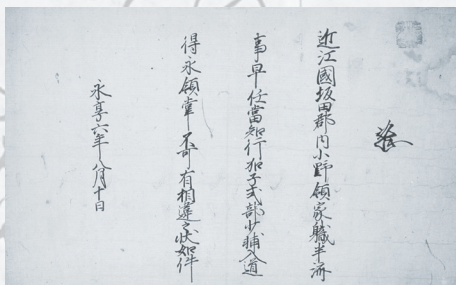 近江國坂田郡内小野領家職半済
事早任當知行加子式部少輔入道
得永領掌不可有相違之状如件
永享六年八月日